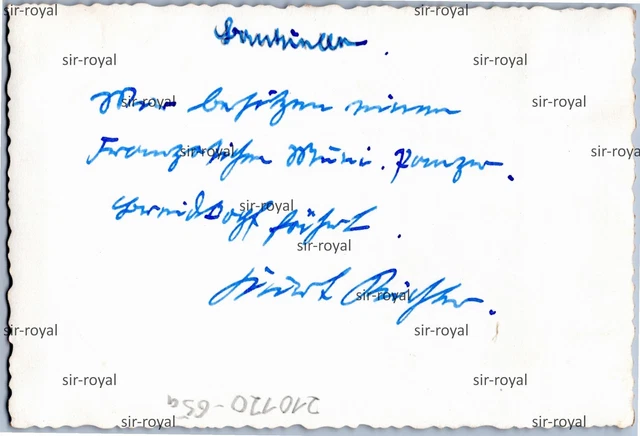 sir-royal sir-royal
sir-royal sir-royal
Wir besitzen einen
sir-royal sir-royal
Französischen Muni. Panzer.
sir-royal sir-royal
sir-royal
fährt.
sir-royal
Kurt Richter.
sir-royal
sir-royal sir-royal
sir-royal sir-royal
210120-65a
sir-royal sir-royal